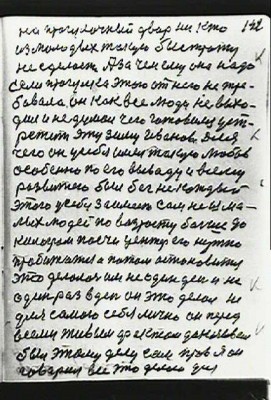 на прогулочный двор ни кто 132
из молодых такую быстроту
не сделает. А за чем ему она надо
если прогулка этого от него не тре-
бовала, он как все люди не выхо-
дил и не думал чего готовился уст-
ретить эту зиму Иванов. Для
чего он у себя имел такую любовь
особенно по его выводу и всему
развитого был бег не каждый
этого у себя заимел сам не с ма-
лых людей по возрасту больше до
которого после центр его нужно
пробежался а потом остановится
это делалось им не один ден и не
один раз в ден он это делал не
для самого себя лично он перед
всеми живым фактом доказывал
был этому делу сам прав я он
говорил все это делаю для